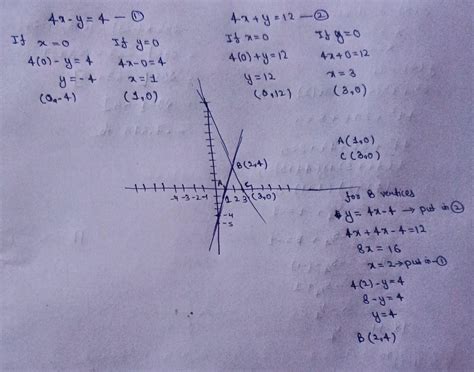 4x - y = 4 — ①
If x = 0
4(0) - y = 4
y = -4
(0, -4)
If y = 0
4x - 0 = 4
x = 1
(1, 0)
4x + y = 12 — ②
If x = 0
4(0) + y = 12
y = 12
(0, 12)
If y = 0
4x + 0 = 12
x = 3
(3, 0)
A(1, 0)
C(3, 0)
B(2, 4)
A
C
-4 -3 -2 -1
1 2 3
(3, 0)
-4
-5
for B vertices
y = 4x - 4 → put in ②
4x + 4x - 4 = 12
8x = 16
x = 2 → put in ①
4(2) - y = 4
8 - y = 4
y = 4
B(2, 4)